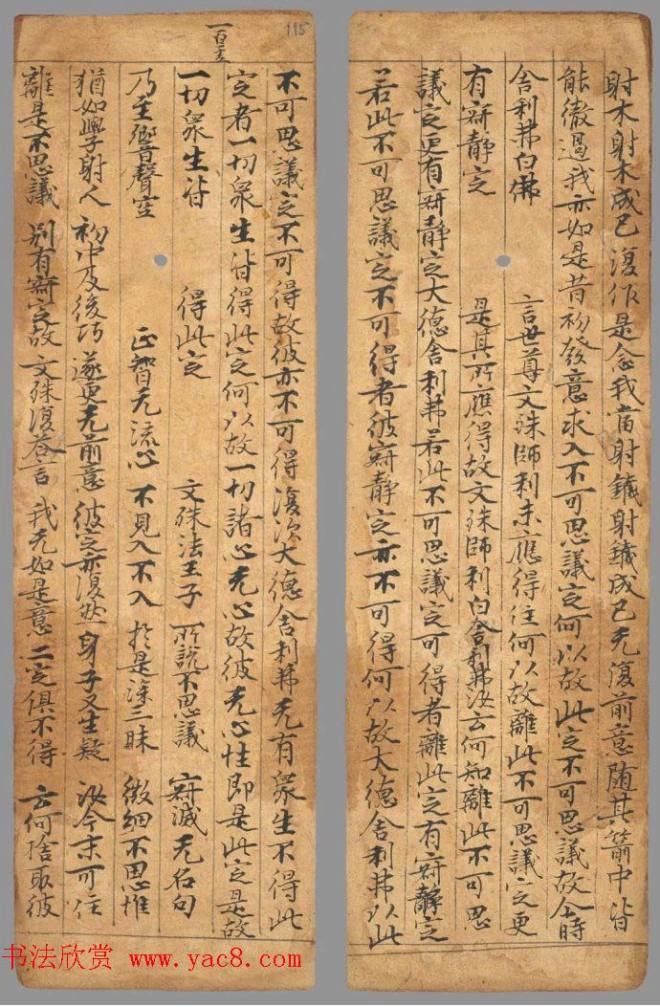 射木射木成已復作是念我當射鐵射鐵成已无復前意随其箭中皆
能徹過我亦如是昔初發意求入不可思議定何以故此定不可思議故今時
舍利弗白佛 言世尊文殊師利未應得住何以故離此不可思議定更
有寂靜定 是其所應得故文殊師利白舍利弗汝云何知離此不可思
議定更有寂靜定大德舍利弗若此不可思議定可得者離此定有寂靜定
若此不可思議定不可得者彼寂靜定亦不可得何以故大德舍利弗以此
115
不可思議定不可得故彼亦不可得復次大德舍利弗无有衆生不得此
定者一切衆生皆得此定何以故一切諸心无心故彼无心性即是此定是故
一切衆生皆 得此定 文殊法王子 所說不思議 寂滅无名句
乃至響聲空 正智无流心 不見入不入 於是深三昧 微細不思惟
猶如學射人 初中及後巧 遂更无前意 彼定亦復然 身子又生疑 汝今未可住
離是不思議 别有寂定故 文殊復答言 我无如是意 二定俱不得 云何捨取彼
书法欣赏 www.yac8.com